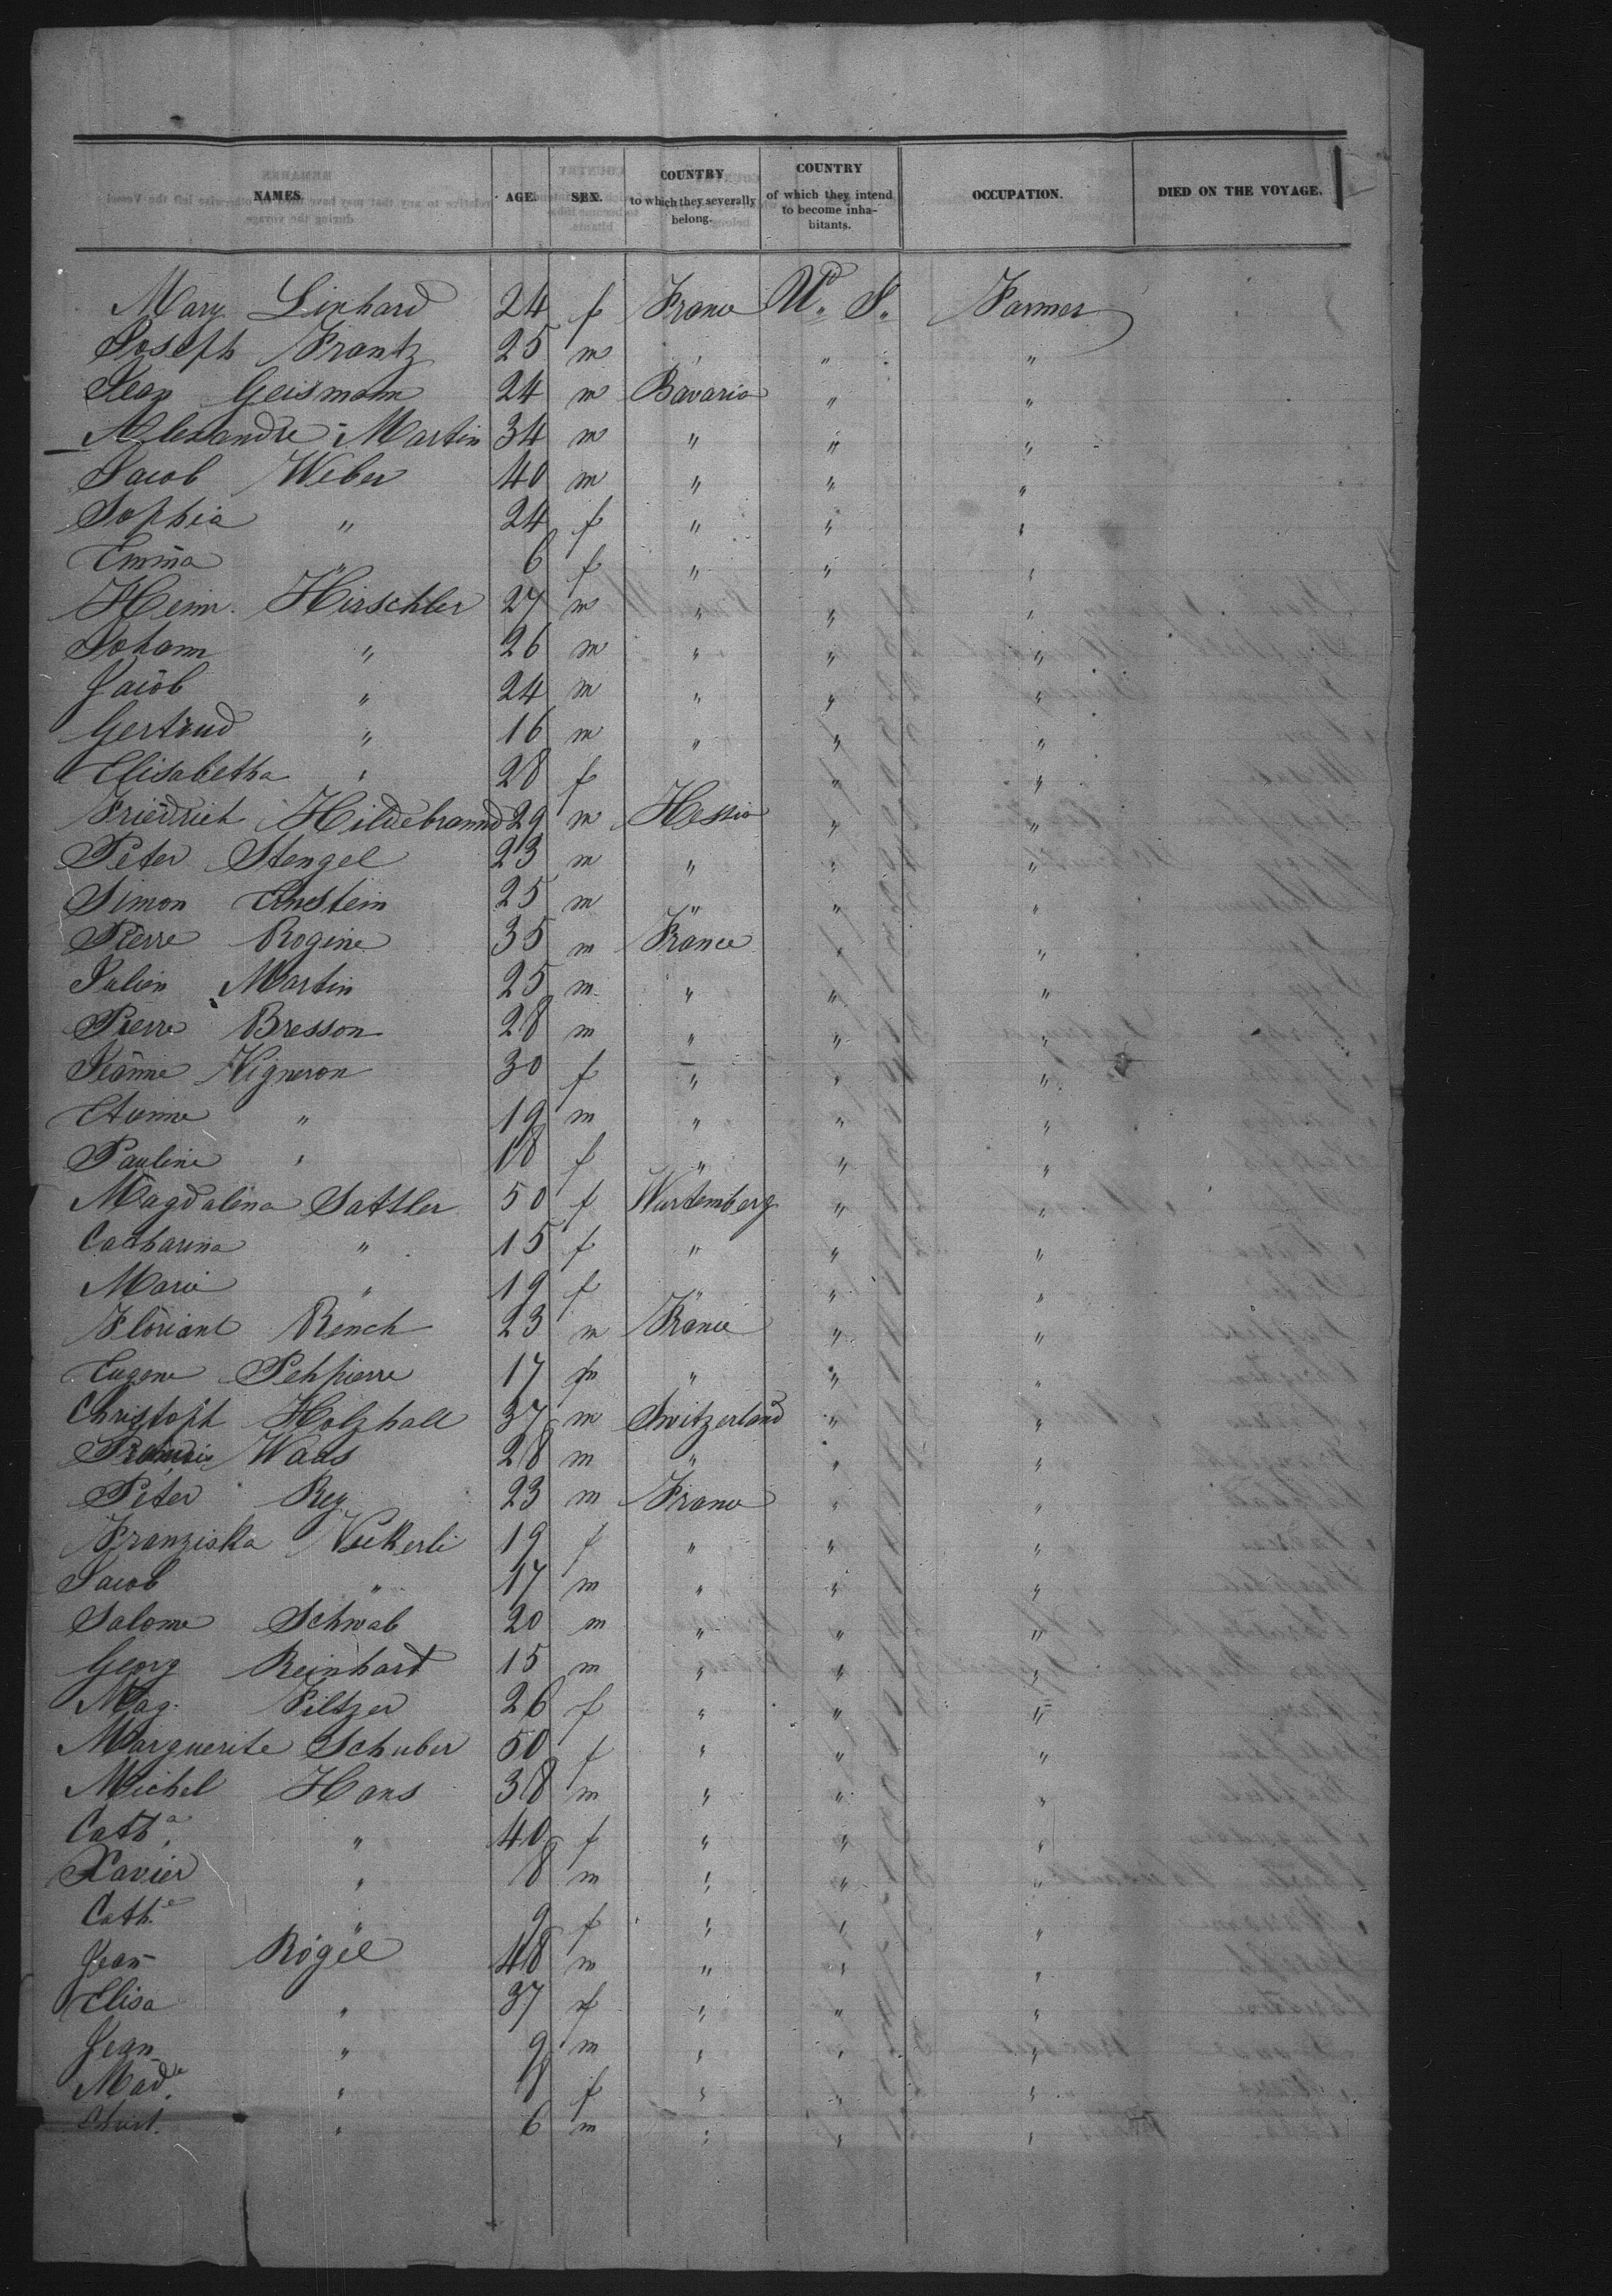 NAMES. AGE. SEX. COUNTRY to which they severally belong. COUNTRY of which they intend to become inhabitants. OCCUPATION. DIED ON THE VOYAGE.
Mary Linhard 24 f France Ud. S. Farmer
Joseph Frantz 25 m " " "
Jean Geismann 24 m Bavaria " "
Alexandre Martin 34 m " " "
Jacob Weber 40 m " " "
Sophia " 24 f " " "
Emma " 6 f " " "
Heinr. Hirschler 27 m " " "
Johann " 26 m " " "
Jacob " 24 m " " "
Gertrud " 16 m " " "
Elisabetha " 28 f " "
Friedrich Hildebrannd 29 m Hessia " "
Peter Stengel 23 m " " "
Simon 25 m " " "
Pierre Rogine 35 m France " "
Julien Martin 25 m " " "
Pierre Bresson 28 m " " "
Jeanne Vigneron 30 f " " "
Etienne " 19 m " " "
Pauline " 18 f " " "
Magdalena Sattler 50 f Wurtemberg " "
Catharina " 15 f " " "
Marie " 19 f " " "
Floriant Rench 23 m France " "
Eugene 17 m " " "
Christoph Holzhall 37 m Switzerland " "
Francois Waas 28 m " " "
Peter Rey 23 m France " "
Franziska 19 f " " "
Jacob " 17 m " " "
Salome Schwab 20 m " " "
Georg Reinhart 15 m " " "
Mag. Piltzer 26 f " " "
Marguerite Schuber 50 f " " "
Michel Hans 38 m " " "
Catha. " 40 f " " "
Xavier " 8 m " " "
Cathe. " 9 f " " "
Jean Rögel 48 m " " "
Elisa " 37 f " " "
Jean " 9 m " " "
Made. " 8 f " " "
Christ. " 6 m " " "